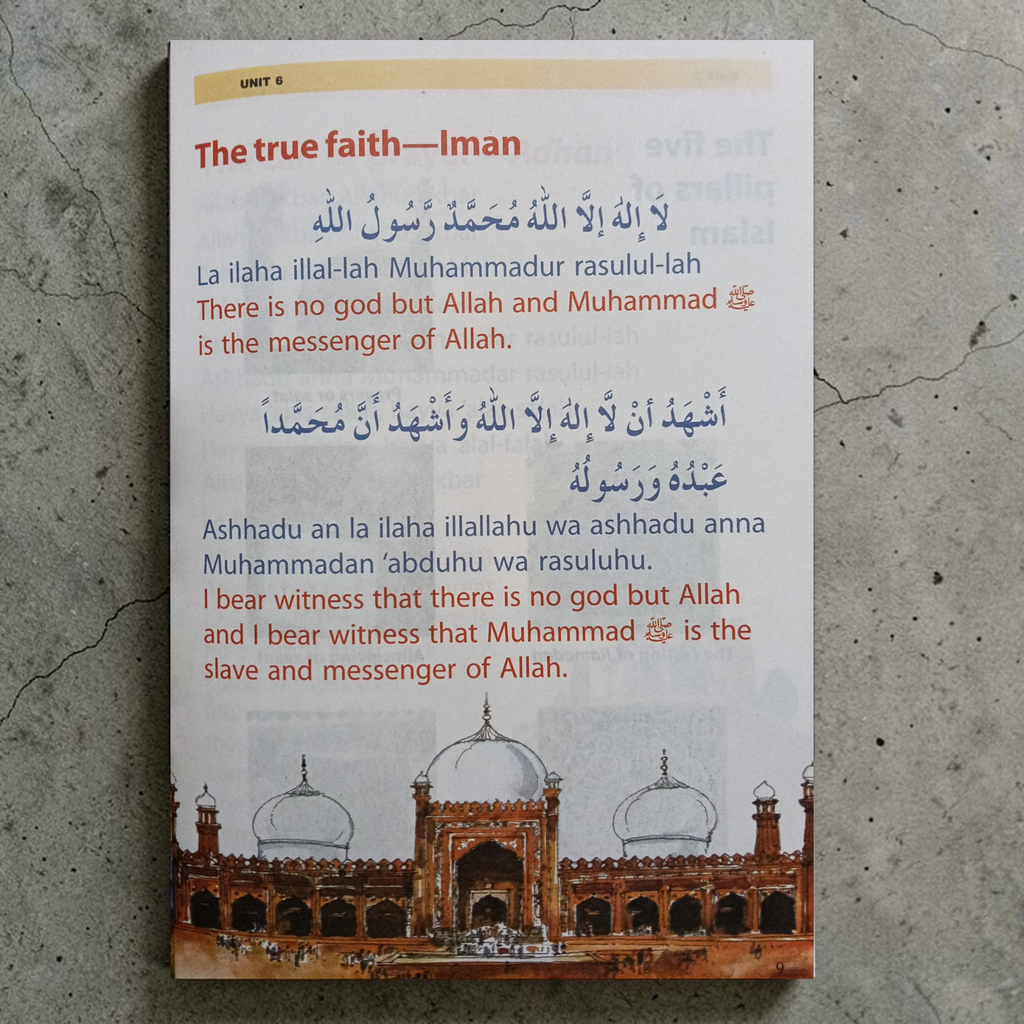 UNIT 6
The true faith—Iman
لَا إِلٰهَ إلَّا اللّٰهُ مُحَمَّدٌ رَّسُولُ اللّٰهِ
La ilaha illal-lah Muhammadur rasulul-lah
There is no god but Allah and Muhammad ﷺ
is the messenger of Allah.
أَشْهَدُ أنْ لَّا إِلٰهَ إِلَّا اللّٰهُ وَأَشْهَدُ أَنَّ مُحَمَّداً
عَبْدُهُ وَرَسُولُهُ
Ashhadu an la ilaha illallahu wa ashhadu anna
Muhammadan ‘abduhu wa rasuluhu.
I bear witness that there is no god but Allah
and I bear witness that Muhammad ﷺ is the
slave and messenger of Allah.
9